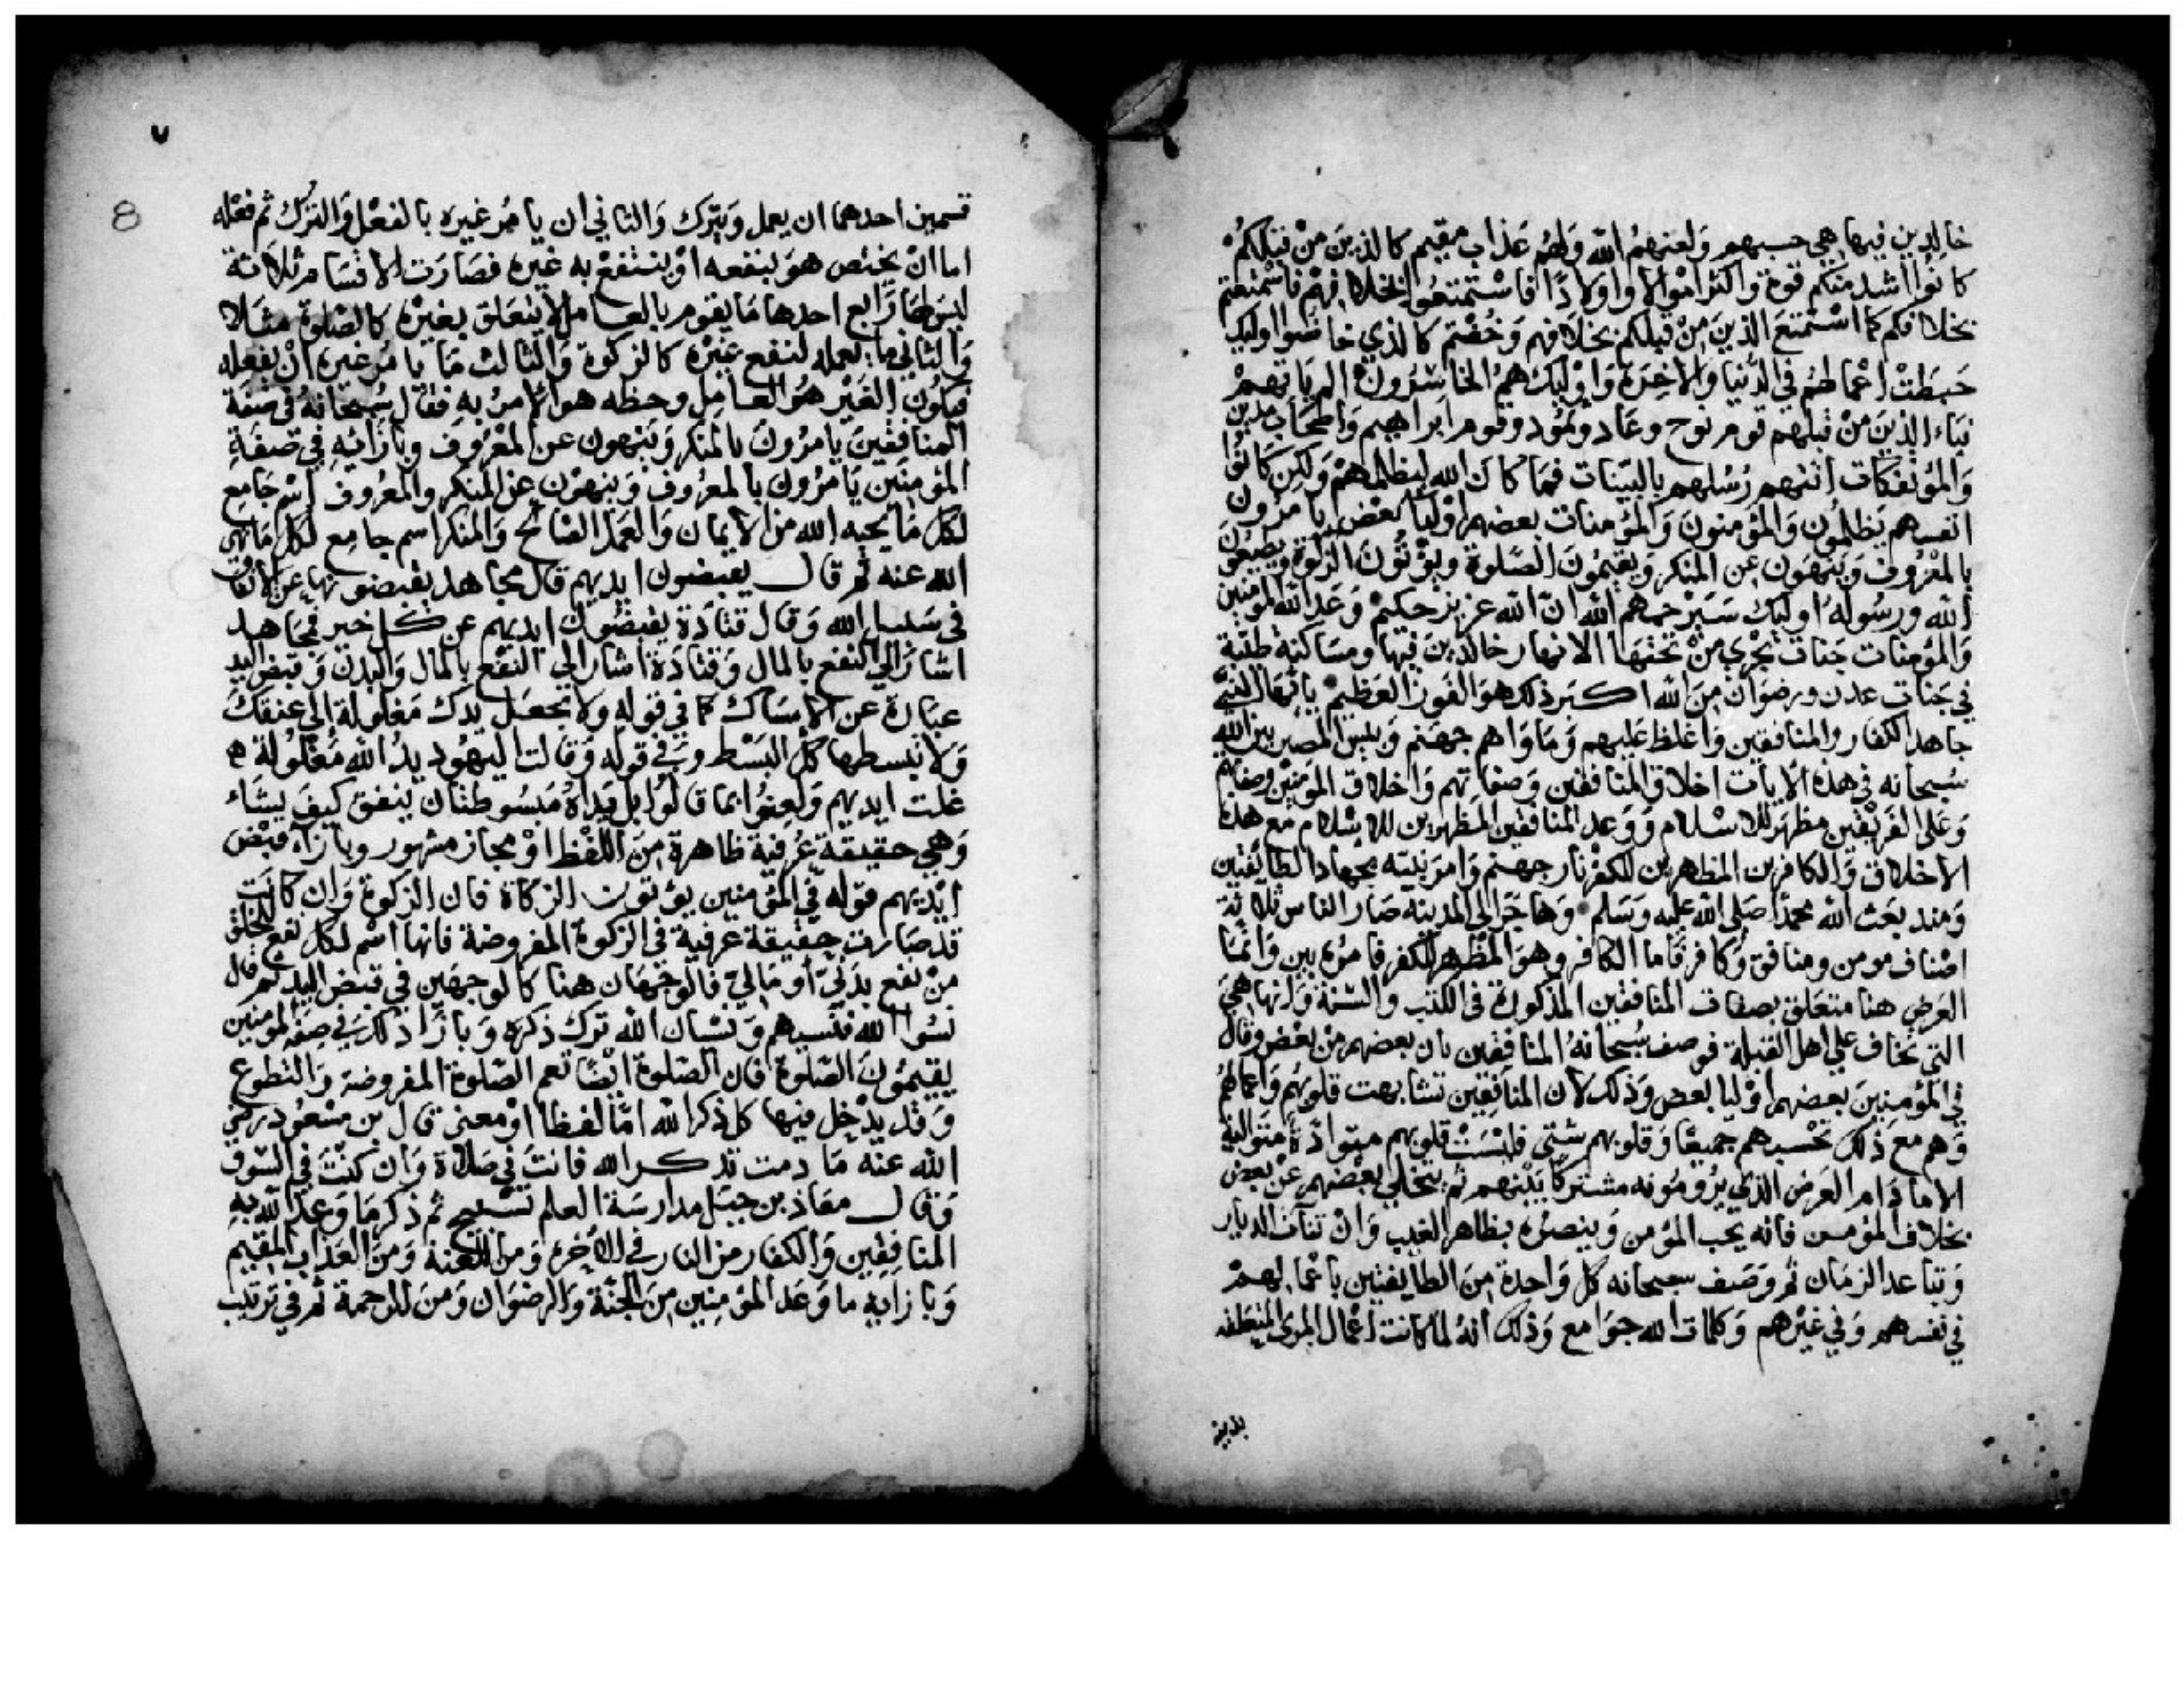 خالدين فيها هي حسبهم ولعنهم الله ولهم عذاب مقيم كالذين من قبلكم
كانوا اشد منكم قوة واكثر اموالا واولادا فاستمتعوا بخلاقهم فاستمتعتم
بخلاقكم كما استمتع الذين من قبلكم بخلاقهم وخضتم كالذي خاضوا اوليك
حبطت اعمالهم في الدنيا والاخرة واوليك هم الخاسرون الم ياتهم
نباء الذين من قبلهم قوم نوح وعاد وثمود وقوم ابراهيم واصحاب مدين
والمؤتفكات اتتهم رسلهم بالبينات فما كان الله ليظلمهم ولكن كانوا
انفسهم يظلمون والمؤمنون والمؤمنات بعضهم اوليا بعض يامرون
بالمعروف وينهون عن المنكر ويقيمون الصلوة ويؤتون الزكوة ويطيعون
الله ورسوله اوليك سيرحمهم الله ان الله عزيز حكيم وعد الله المومنين
والمؤمنات جنات تجري من تحتها الانهار خالدين فيها ومساكن طيبة
في جنات عدن ورضوان من الله اكبر ذلك هو الفوز العظيم يا ايها النبي
جاهد الكفار والمنافقين واغلظ عليهم وماواهم جهنم وبئس المصير بين الله
سبحانه في هذه الايات اخلاق المنافقين وصفاتهم واخلاق المومنين وصفاتهم
وعلى الفريقين مظهر للاسلام ووعد المنافقين المظهرين للاسلام مع هذه
الاخلاق والكافرين المظهرين للكفر نار جهنم وامر نبيه بجهاد الطائفتين
ومنذ بعث الله محمدا صلى الله عليه وسلم وهاجر الى المدينة صار الناس ثلاثة
اصناف مومن ومنافق وكافر فاما الكافر وهو المظهر للكفر فامره بين وانما
الغرض هنا متعلق بصفات المنافقين المذكورة في الكتب والسنة وانها هي
التي تخاف على اهل القبلة فوصف سبحانه المنافقين بان بعضهم من بعض وقال
في المؤمنين بعضهم اوليا بعض وذلك لان المنافقين تشابهت قلوبهم واعمالهم
وهم مع ذلك تحسبهم جميعا وقلوبهم شتى فليست قلوبهم متوادة متوالية
الا مادام الغرض الذي يرومونه مشتركا بينهم ثم يتخلى بعضهم عن بعض
بخلاف المؤمن فانه يحب المؤمن وينصره بظاهر الغيب وان تنآت الديار
وتباعد الزمان ثم وصف سبحانه كل واحدة من الطايفتين باعمالهم
في نفسهم وفي غيرهم وكلمات الله جوامع وذلك انه لما كانت اعمال المرء
قسمين احدهما ان يعمل ويترك والثاني ان يامر غيره بالفعل والترك ثم فعله
اما ان يختص هو بنفعه او ينتفع به غيره فصارت الاقسام ثلاثة
ليس لها رابع احدها ما يقوم بالعامل لا يتعلق بغيره كالصلوة مثلا
والثاني ما يعمله لنفع غيره كالزكوة والثالث ما يامر غيره ان يفعله
فيكون الغير هو العامل وحظه هو الامر به فقال سبحانه في صفة
المنافقين يامرون بالمنكر وينهون عن المعروف وبازائه في صفة
المؤمنين يامرون بالمعروف وينهون عن المنكر والمعروف اسم جامع
لكل ما يحبه الله من الايمان والعمل الصالح والمنكر اسم جامع لكل ما نهى
الله عنه ثم قال يقبضون ايديهم قال مجاهد يقبضونها عن الانفاق
في سبيل الله وقال قتادة يقبضون ايديهم عن كل خير فمجاهد
اشار الى النفع بالمال وقتادة اشار الى النفع بالمال والبدن وقبض اليد
عبارة عن الامساك كما في قوله ولا تجعل يدك مغلولة الى عنقك
ولا تبسطها كل البسط وفي قوله وقالت اليهود يد الله مغلولة
غلت ايديهم ولعنوا بما قالوا بل يداه مبسوطتان ينفق كيف يشاء
وهي حقيقة عرفية ظاهرة من اللفظ او مجاز مشهور وبازاء قبض
ايديهم قوله في المؤمنين يؤتون الزكاة فان الزكوة وان كانت
قد صارت حقيقة عرفية في الزكوة المفروضة فانها اسم لكل نفع للخلق
من نفع بدني او مالي فالوجهان هنا كالوجهين في قبض اليد ثم قال
نسوا الله فنسيهم ونسيان الله ترك ذكره وبازاء ذلك في صفة المومنين
يقيمون الصلوة فان الصلوة ايضا تعم الصلوة المفروضة والتطوع
وقد يدخل فيها كل ذكر الله اما لفظا او معنى قال بن مسعود رضي
الله عنه ما دمت تذكر الله فانت في صلاة وان كنت في السوق
وقال معاذ بن جبل مدارسة العلم تسبيح ثم ذكر ما وعد الله به
المنافقين والكفار من النار في الاخرة ومن اللعنة ومن العذاب المقيم
وبازايه ما وعد المؤمنين من الجنة والرضوان ومن الرحمة ثم في ترتيب
٧
8